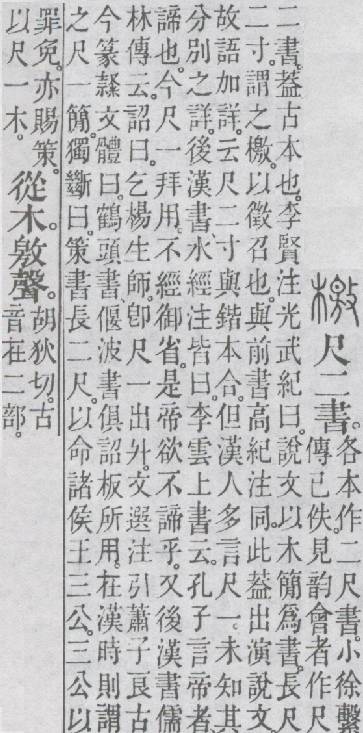 檄 尺二書。
各本作二尺書。小徐繫
傳已佚。見韵會者作尺
二書。葢古本也。李賢注光武紀曰。說文以木簡爲書。長尺
二寸。謂之檄。以徵召也。與前書高紀注同。此葢出演說文。
故語加詳。云尺二寸與鍇本合。但漢人多言尺一。未知其
分別之詳。後漢書、水經注皆曰。李雲上書云。孔子言帝者
諦也。今尺一拜用。不經御省。是帝欲不諦乎。又後漢書儒
林傳云。詔曰。乞楊生師。卽尺一出升。文選注引蕭子良古
今篆隷文體曰。鶴頭書、偃波書俱詔板所用。在漢時則謂
之尺一簡。獨斷曰。策書長二尺。以命諸侯王三公。三公以
罪免。亦賜策。
以尺一木。
從木。敫聲。
胡狄切。古
音在二部。